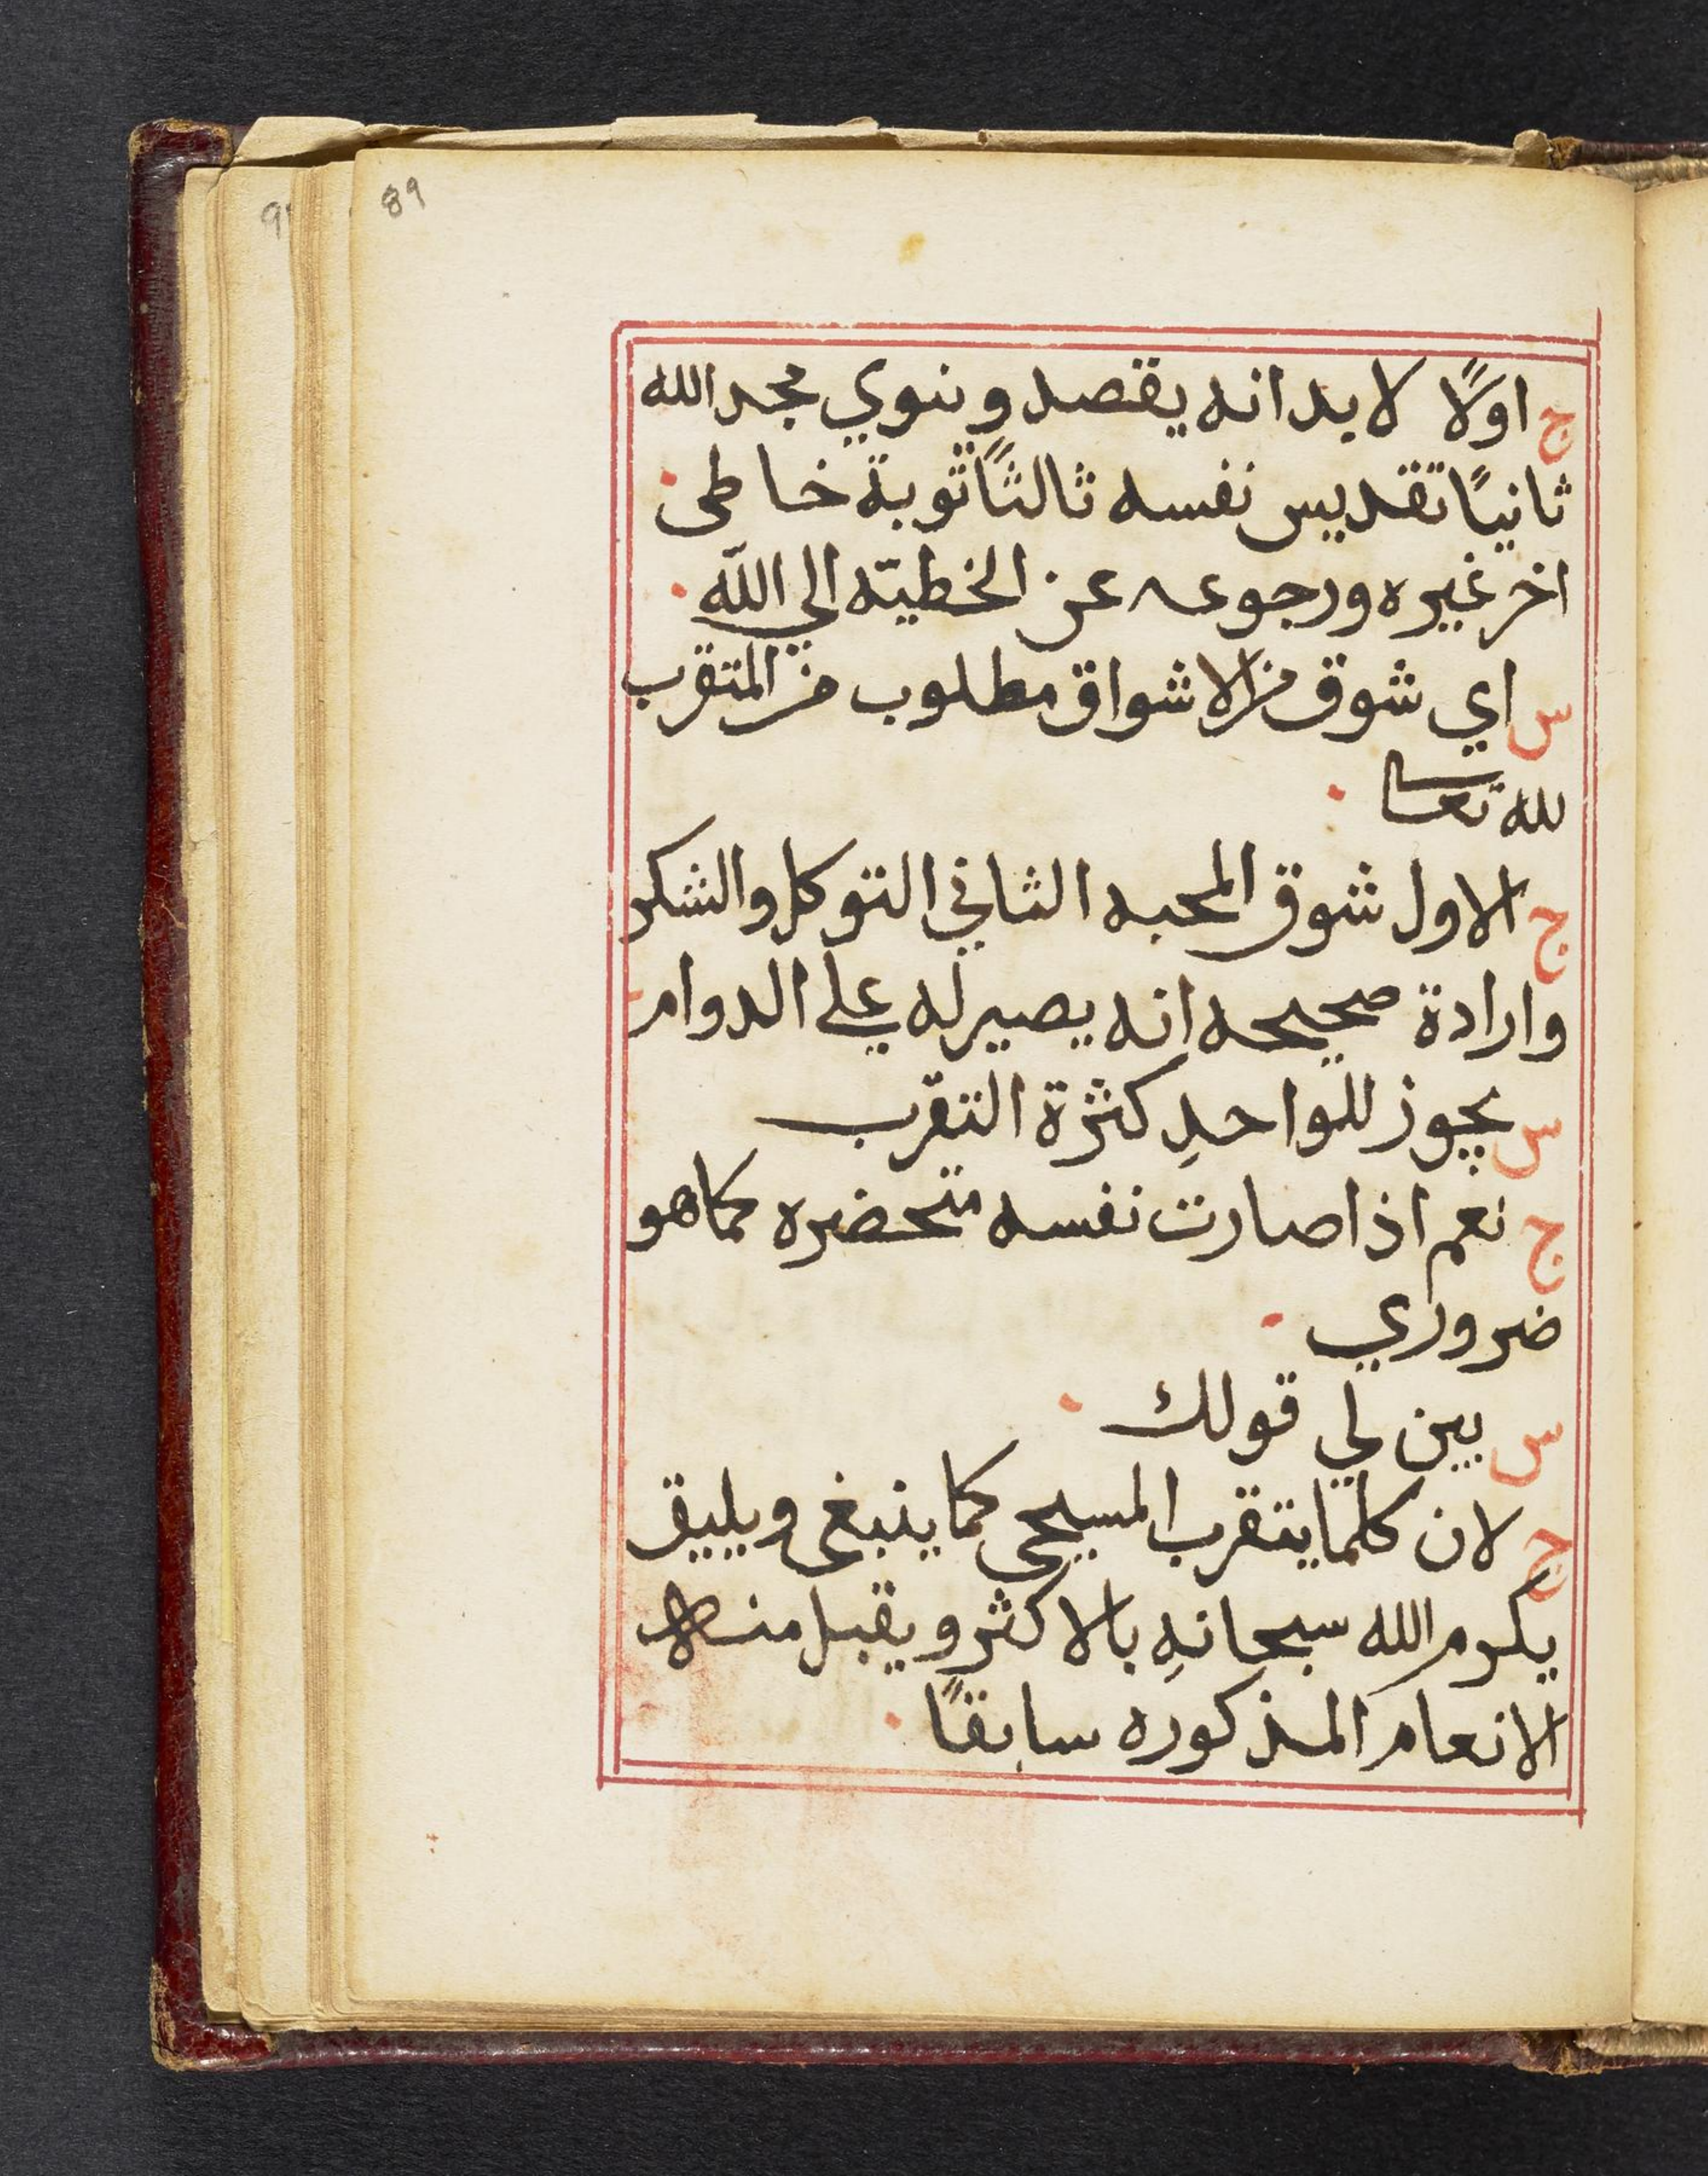 89
ج اولًا لا بد انه يقصد وينوي مجد الله
ثانيًا تقديس نفسه ثالثًا توبة خاطى
اخر غيره ورجوعه عن الخطيّه الي الله
س اي شوق من الاشواق مطلوب من المتقرب
لله تعالي
ج الاول شوق المحبه الثاني التوكل والشكر
وارادة صحيحه انه يصير له علي الدوام
س يجوز للواحدِ كثرة التقرب
ج نعم اذا صارت نفسه متحضره كما هو
ضروري
س بين لي قولك
ج لان كلما يتقرب المسيحي كما ينبغي ويليق
يكرم الله سبحانهِ بالاكثر ويقبل منه
الانعام المذكوره سابقًا